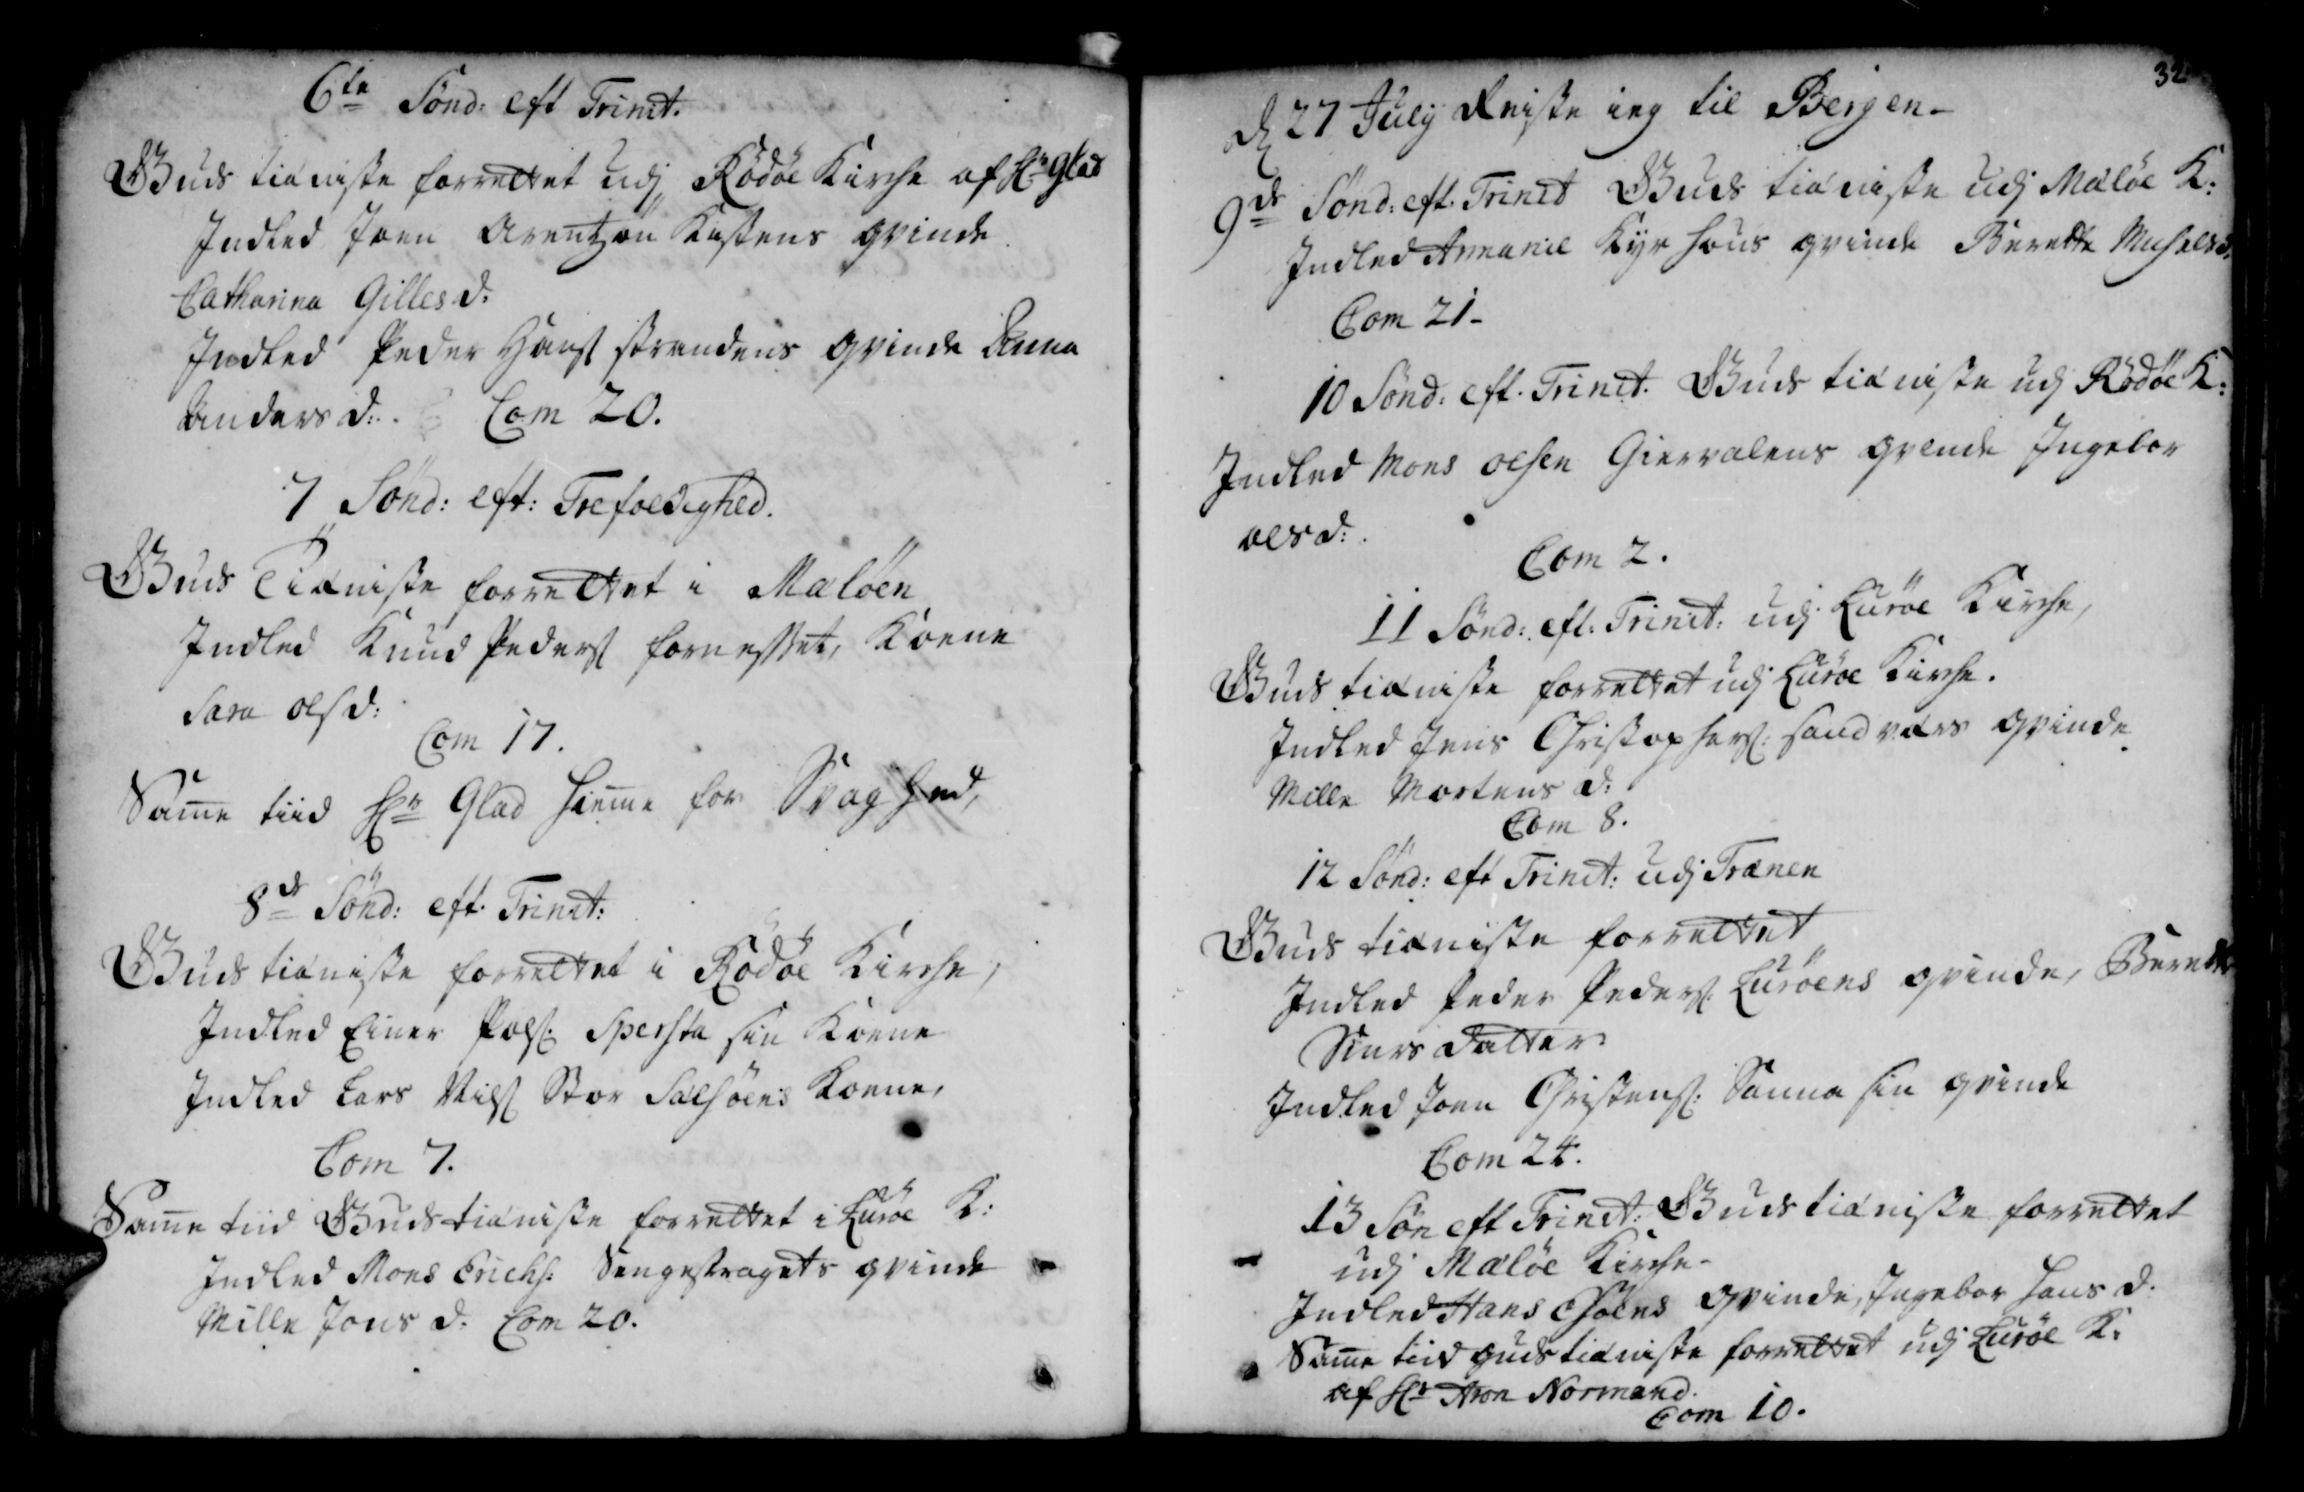 6te Sönd: eft Trinit.
Guds tieniste forrettet udj Rödöe Kirche af Hr Glad
Indled Joen Arentzön Kastens qvinde
Catharina Gilles d:
Indled Peder Hans strandens qvinde Anna
Anders d: Com 20.
7 Sönd: eft: Trefoldighed.
Guds Tieniste forrettet i Malöen
Indled Knud Peders fornesset, Koene
Sara ols d:
Com 17.
Same tiid Hr Glad hieme for Svaghed,
8de Sönd: eft. Trinit:
Guds tieniste forrettet i Rödöe Kirche,
Indled Einer Pols: sin Koene
Indled Lars Nils Stor Selsöens Koene,
Com 7.
Same tiid Guds tieniste forrettet i Luröe K:
Indled Mons Erichs: qvinde
Mille Jons d: Com 20.
32
d 27 July Reiste ieg til Bergen-
9de Sönd: eft. Trinit Guds tieniste udj Malöe K:
Indled qvinde Berette Michels d.
Com 21-
10 Sönd: eft. Trinit. Guds tieniste udj Rödöe K:
Indled Mons olsen Giervalens qvinde Ingebor
ols d:
Com 2.
11 Sönd: eft. Trinit: udj Luröe Kirche,
Guds tieniste forrettet udj Luröe Kirche.
Indled Jens Christophers: sandværs qvinde
Mille Mortens d:
Com 8.
12 Sönd: eft Trinit: udj Trænen
Guds tieniste forrettet
Indled Peder Peders: Luröens qvinde, Berette
datter
Indled Joen Christens: Sanna sin qvinde
Com 24.
13 Sön eft Trinit: Guds tieniste forrettet
udj Malöe Kirche-
Indled Hans qvinde, Ingebor Hans d.
Same tiid guds tieniste forrettet udj Luröe K:
af Hr Aron Normand.
Com 10.